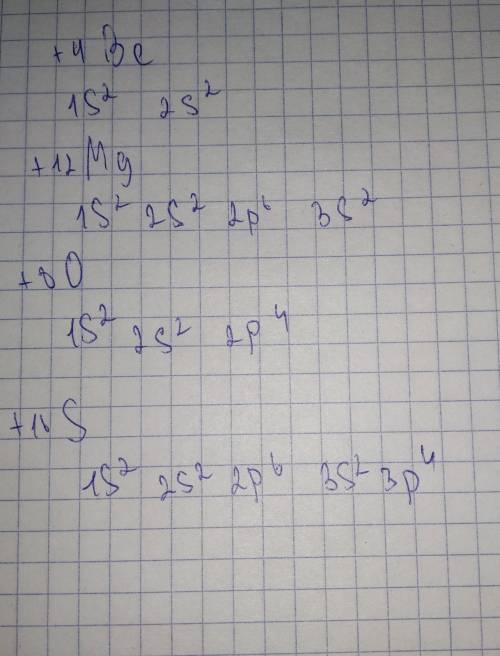 +4 Be
1S² 2S²
+12 Mg
1S² 2S² 2p⁶ 3S²
+8 O
1S² 2S² 2p⁴
+16 S
1S² 2S² 2p⁶ 3S² 3p⁴